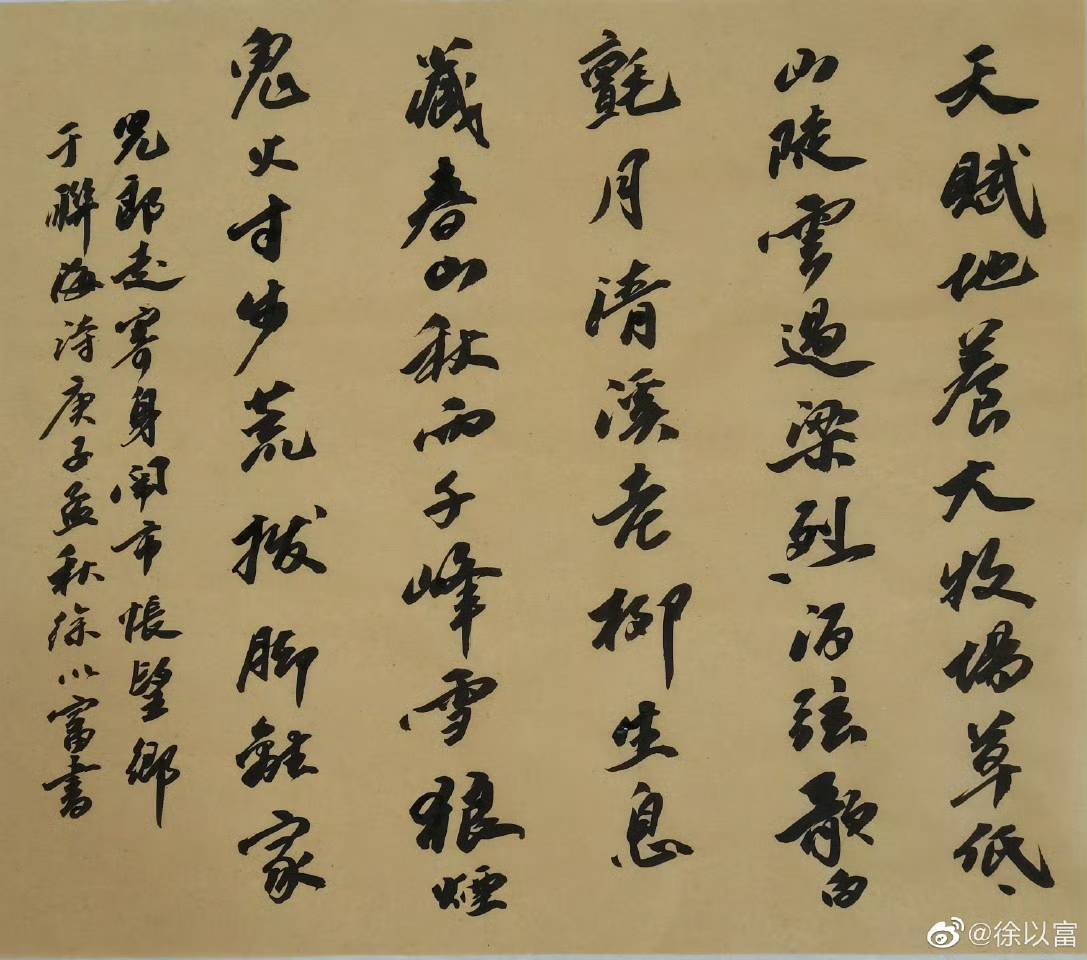 天賦地養大牧場草低
山陡雲過梁烈酒弦歌白
氈月清溪老柳生息
藏春山秋雨千峰雪狼煙
鬼火寸步荒拔脚離家
兄郎走寄身鬧市悵望鄉
于聯海詩庚子孟秋徐以富書
@徐以富